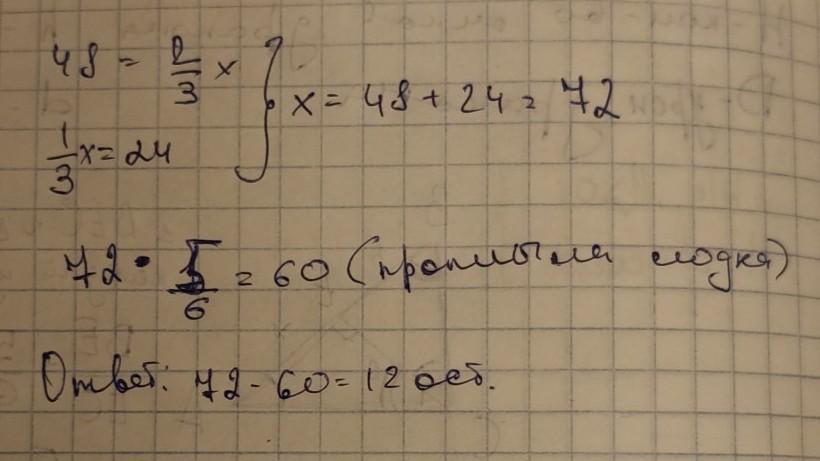 48 = 2/3 x } x = 48 + 24 = 72
1/3 x = 24
72 · 5/6 = 60 (проплыла лодка)
Ответ: 72 - 60 = 12 ост.